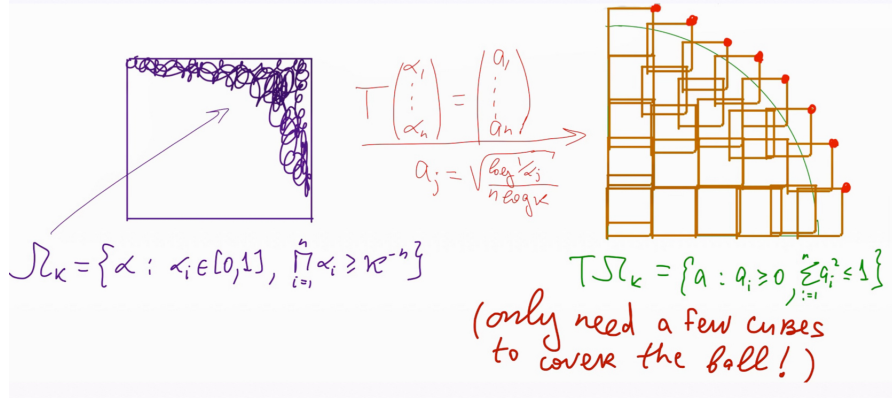 T(α₁ ⋮ αₙ) = (a₁ ⋮ aₙ)
aⱼ = √(log 1/αⱼ / n log κ)
Ωκ = {α : αᵢ ∈ [0,1], ∏ᵢ₌₁ⁿ αᵢ ≥ κ⁻ⁿ}
TΩκ = {a : aᵢ ≥ 0, ∑ᵢ₌₁ⁿ aᵢ² ≤ 1}
(only need a few cubes
to cover the ball!)